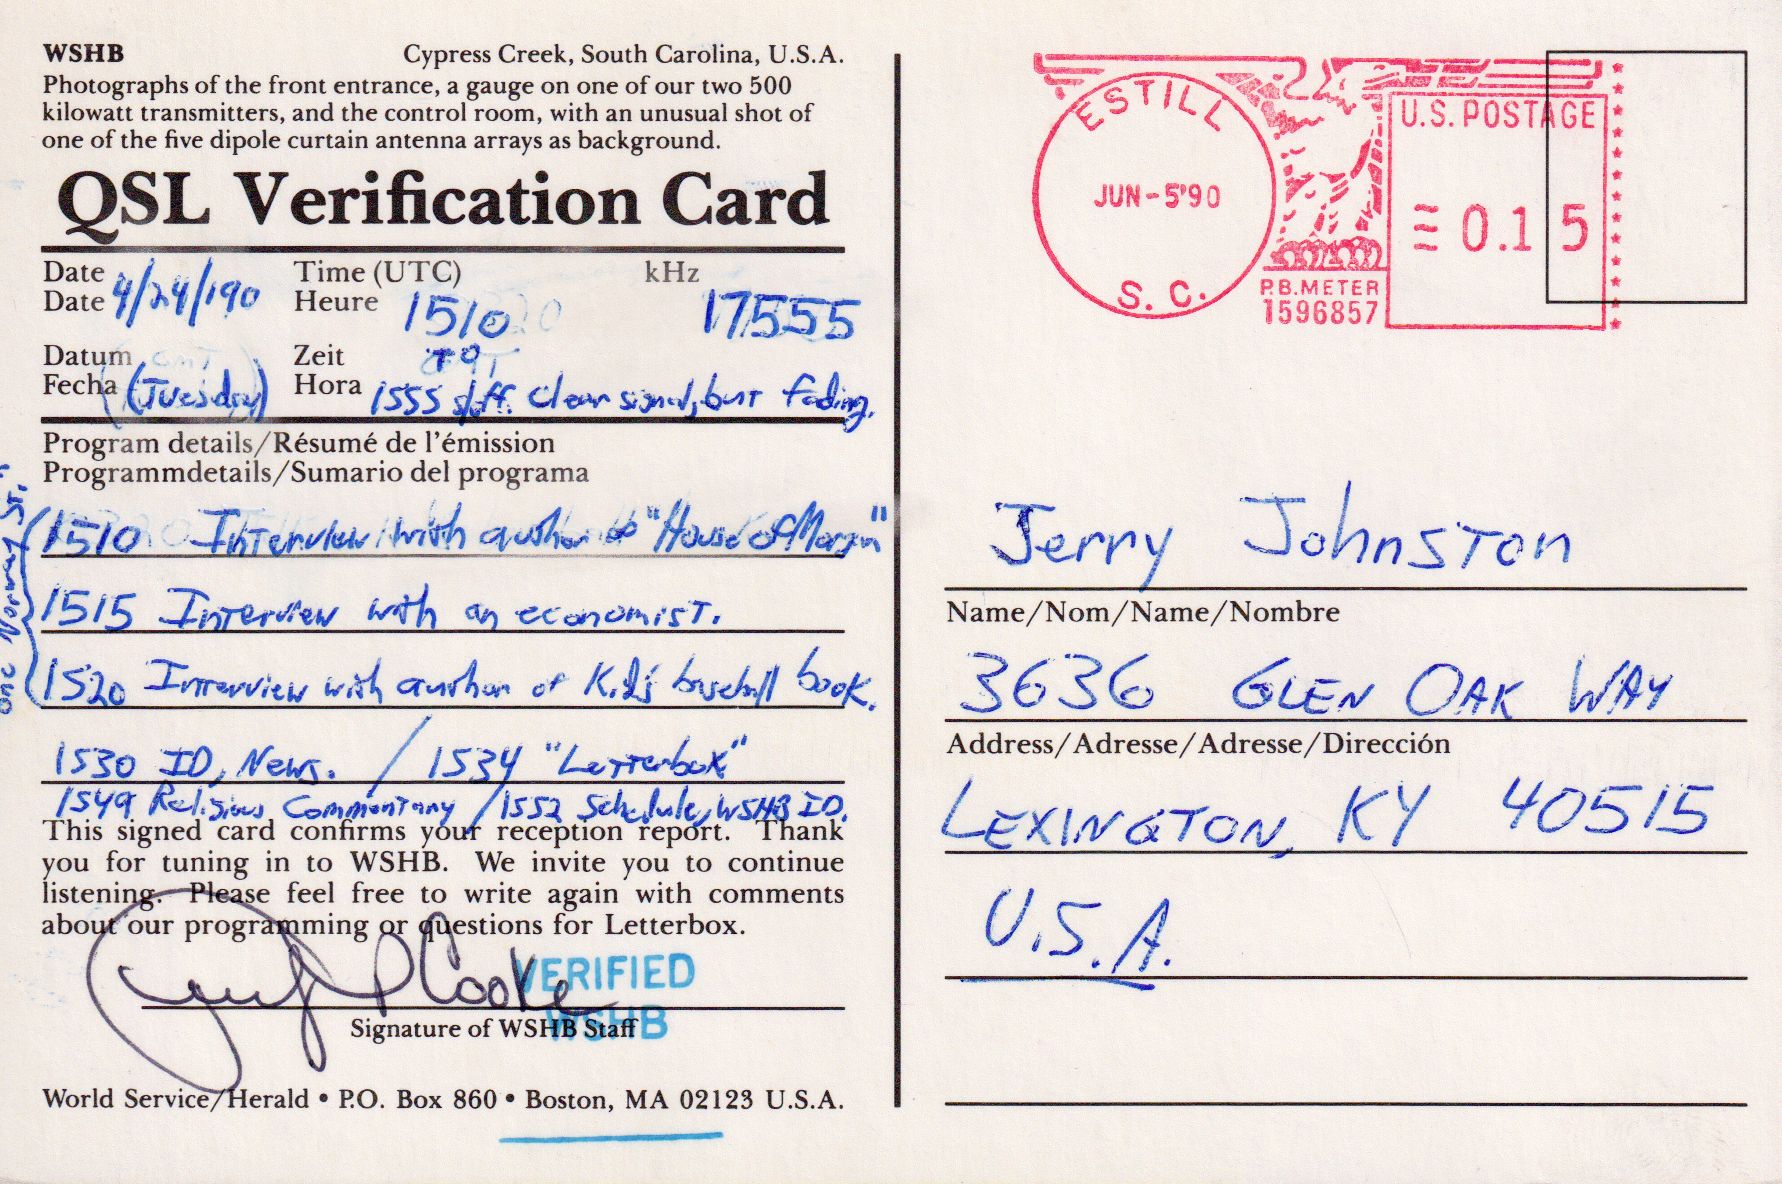 WSHB Cypress Creek, South Carolina, U.S.A.
Photographs of the front entrance, a gauge on one of our two 500
kilowatt transmitters, and the control room, with an unusual shot of
one of the five dipole curtain antenna arrays as background.
QSL Verification Card
Date Time (UTC) kHz
Date 4/24/190 Heure 1510 17555
Datum Zeit TO
Fecha (Tuesday) Hora 1555 s/off. Clear signal, but fading.
Program details/Résumé de l'émission
Programmdetails/Sumario del programa
One Norway St.
1510 Interview with author of "House of Morgan"
1515 Interview with an economist.
1520 Interview with author of Kid's baseball book.
1530 ID, News. / 1534 "Letterbox"
1549 Religious Commentary / 1552 Schedule, WSHB ID.
This signed card confirms your reception report. Thank
you for tuning in to WSHB. We invite you to continue
listening. Please feel free to write again with comments
about our programming or questions for Letterbox.
Cooke
VERIFIED
WSHB
Signature of WSHB Staff
World Service/Herald • P.O. Box 860 • Boston, MA 02123 U.S.A.
ESTILL
JUN-5'90
S. C.
P.B. METER
1596857
U.S. POSTAGE
0.15
Jerry Johnston
Name/Nom/Name/Nombre
3636 GLEN OAK WAY
Address/Adresse/Adresse/Dirección
LEXINGTON, KY 40515
U.S.A.